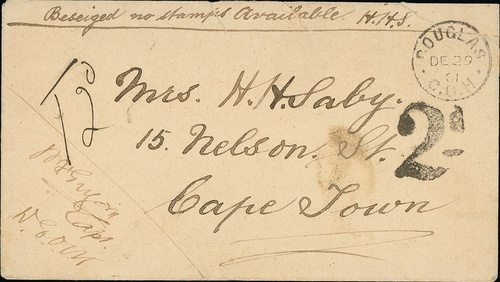 Beseiged no stamps Available. H.H.S.
DOUGLAS
DE 29
C.G.H
T
Mrs. H.H. Saby.
2d
15. Nelson. St.
Cape Town
Capt.